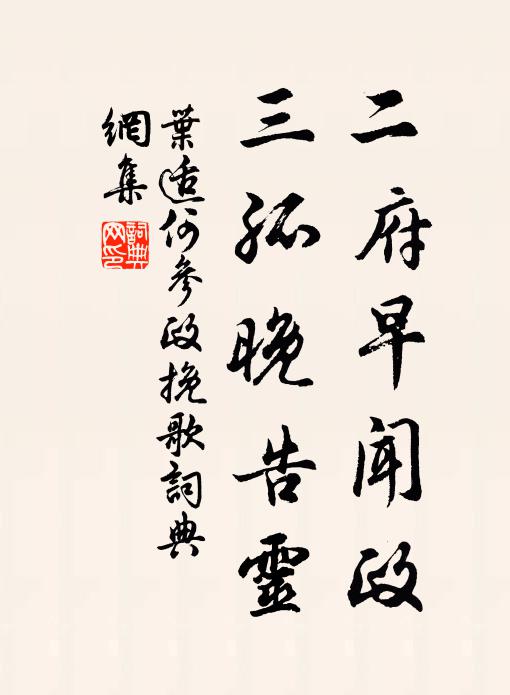 二府早聞政
三孤晚告靈
葉适何參政挽歌詞典
網集
詞典網印